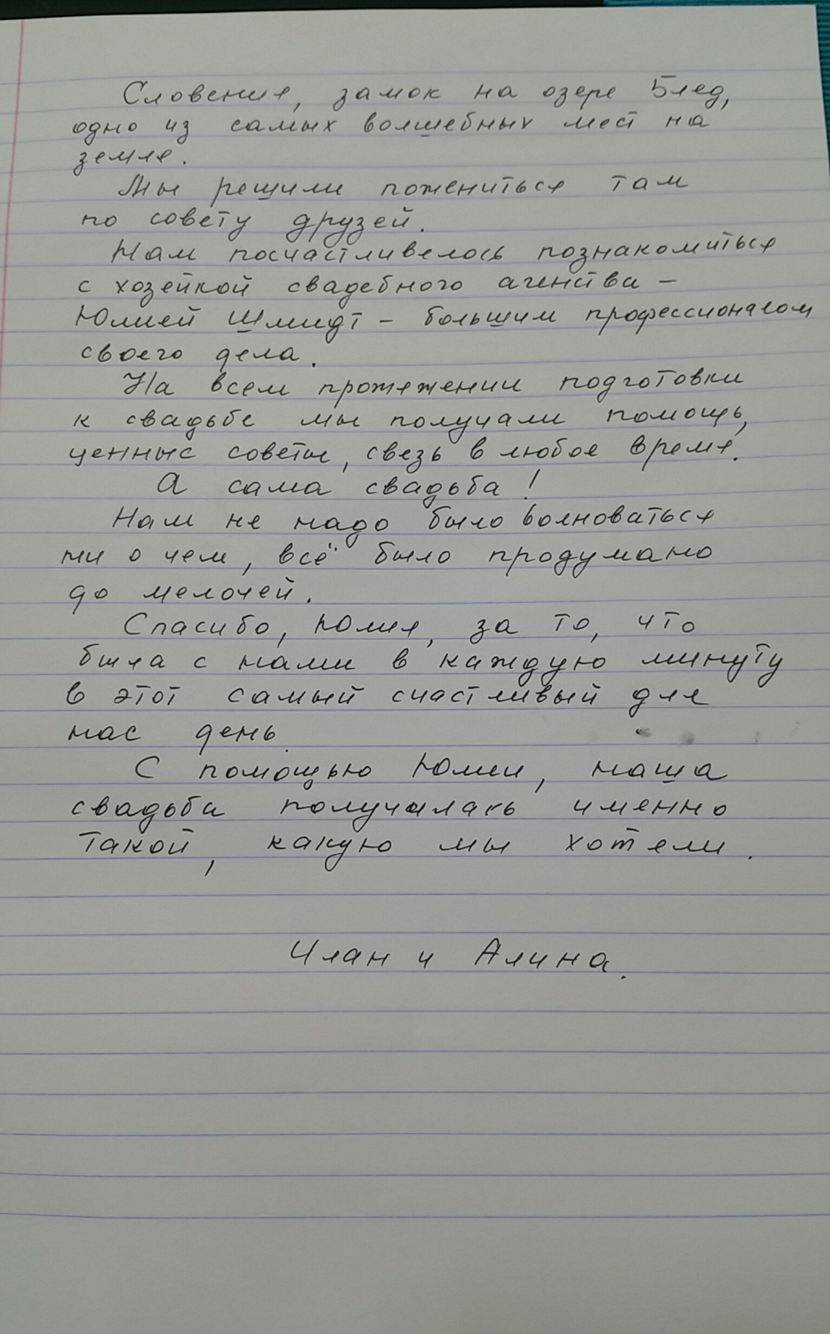 Словения, замок на озере Блед,
одно из самых волшебных мест на
земле.
Мы решили пожениться там
по совету друзей.
Нам посчастливелось познакомиться
с хозейкой свадебного агенства –
Юлией Шмидт – большим профессионалом
своего дела.
На всем протяжении подготовки
к свадьбе мы получали помощь,
ценные советы, связь в любое время.
А сама свадьба!
Нам не надо было волноваться
ни о чем, всё было продумано
до мелочей.
Спасибо, Юлия, за то, что
была с нами в каждую минуту
в этот самый счастливый для
нас день.
С помощью Юлии, наша
свадьба получилась именно
такой, какую мы хотели.
Илан и Алина.